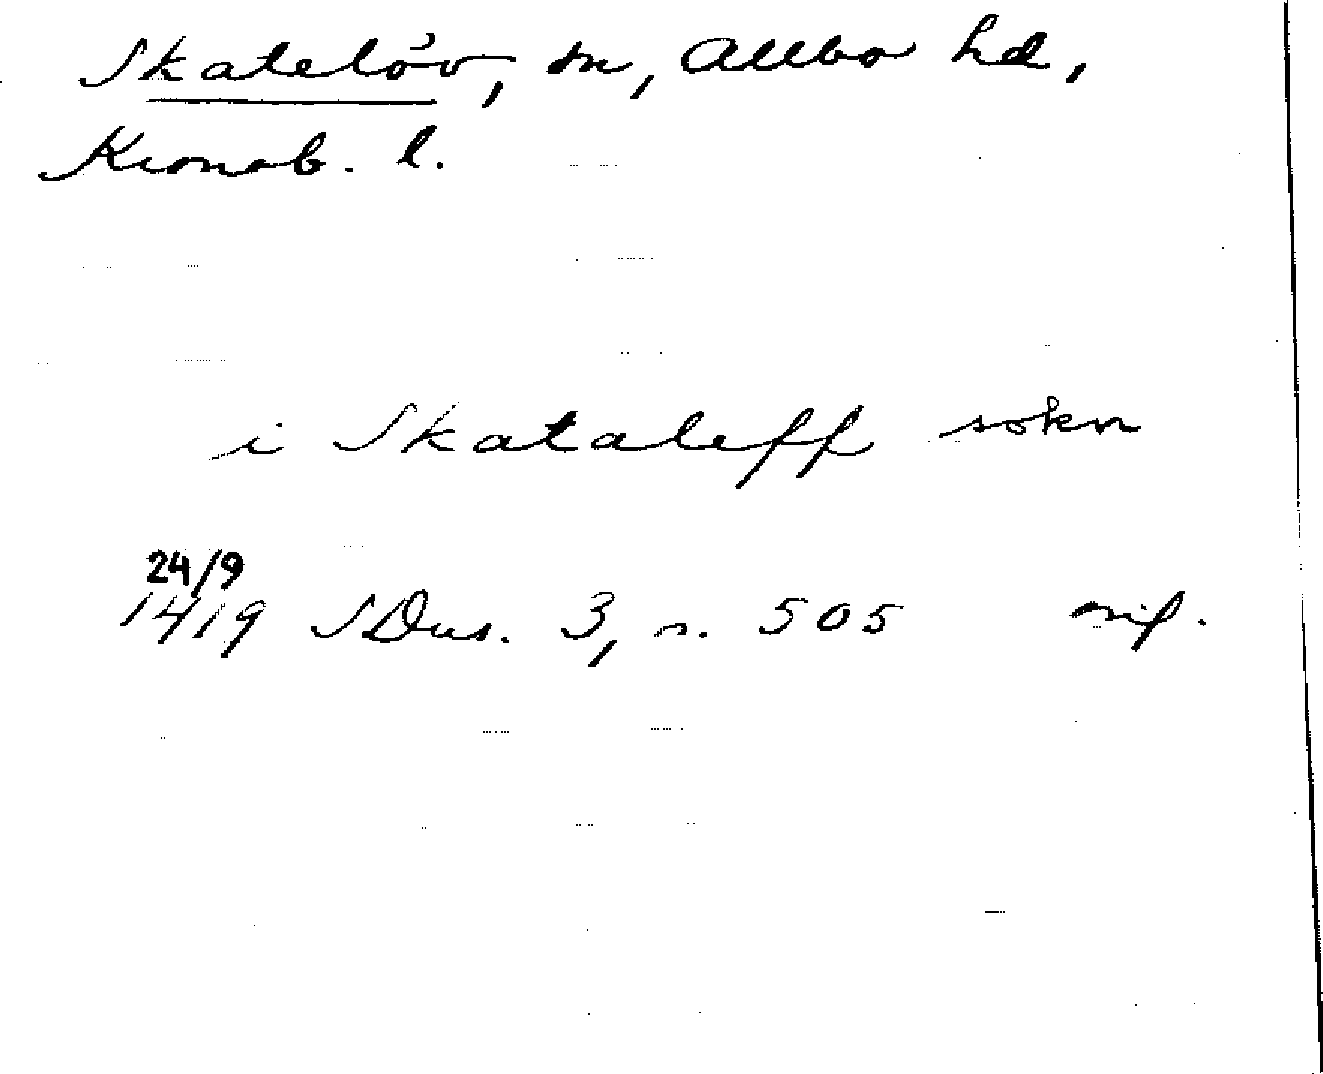 Skatelöv, sn, Allbo hd,
Kronob. l.
i Skataleff sokn
24/9
1419 SDns. 3, s. 505